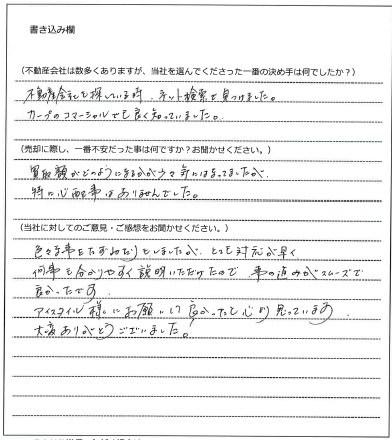 書き込み欄
(不動産会社は数多くありますが、当社を選んでくださった一番の決め手は何でしたか?)
不動産会社を探している時、ネット検索で見つけました。
カープのコマーシャルでも良く知っていました。
(売却に際し、一番不安だった事は何ですか?お聞かせください。)
買取額がどのようになるか少々気にはなってましたが、
特に心配事はありませんでした。
(当社に対してのご意見・ご感想をお聞かせください。)
色々な事をたずねたりとしましたが、とても対応が早く
何事も分かりやすく説明いただけたので、事の進みがスムーズで
良かったです。
アイスタイル様にお願いして良かったと心より思っています。
大変ありがとうございました!